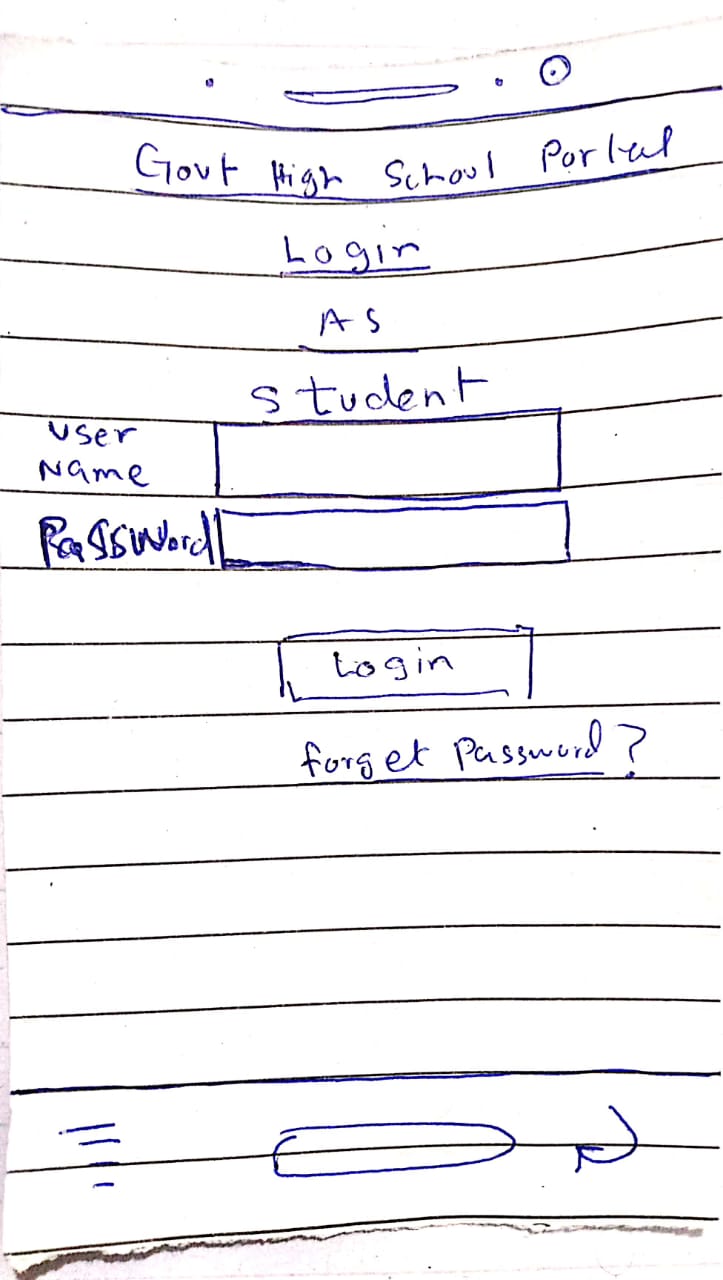 Govt High School Portal
Login
AS
Student
User
Name
Password
Login
forget Password?